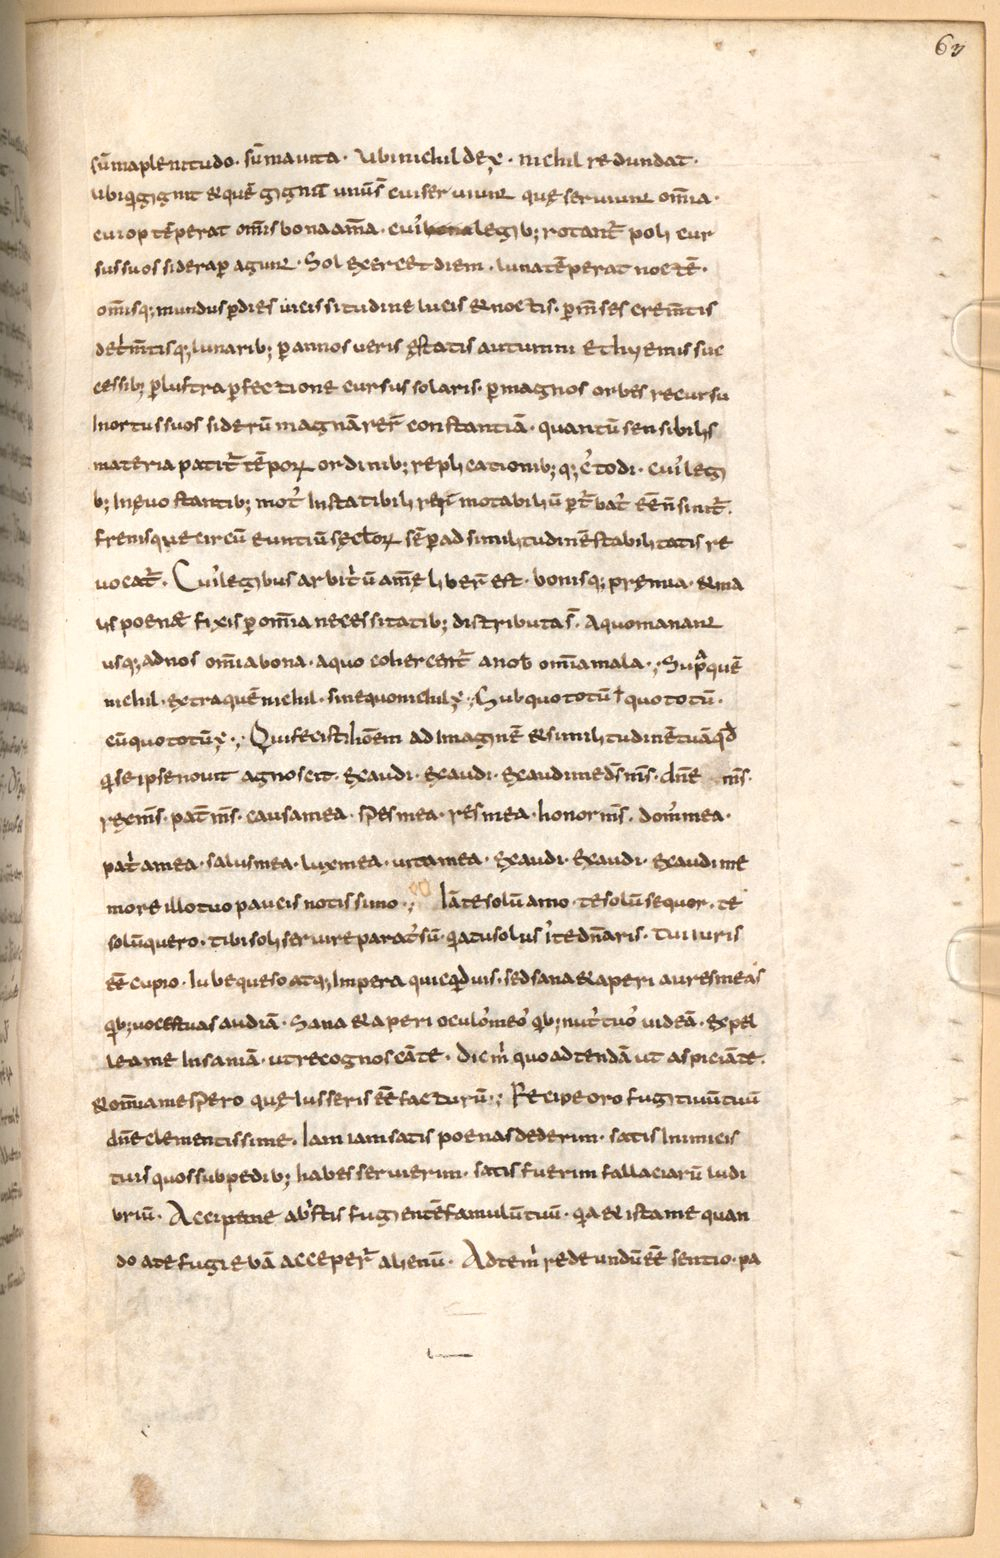 63
sūmaplenitudo· sūmauita· Vbinichil dee̅· nichil redundat·
ubiq̇ gignit &quē gignit unūs̄ cui seruiunt quę seruiunt omīa·
cui optēperat omīs bona anīa· cuiꝰ legib; rotant̄ poli cur
sus suos sidera ꝑagunt· Sol exercet diem· luna tēperat noctē·
omīsq; mundus ꝑ dies uicissitudine lucis & noctis· ꝑ mēses crem̄tis
detrim̄tisq; lunarib; ꝑ annos ueris ęstatis autumni et hyemis suc
cessib; ꝑ lustra ꝑfectione cursus solaris· ꝑ magnos orbes recursu
In ortus suos siderū magnā rer̄ constantiā· quantū sensibilis
materia patit̄ tēporꝝ ordinib; replicationib; q; c̄todi· cuiꝰ legi
b; In ęuo stantib; motꝰ Instabilis rerū mutabiliū ꝑt̄batꝰ eē n̄ sinit̄·
frenisque circū euntiū sęclorꝝ sēꝑ ad similitudinē stabilitatis re
uocat̄· Cuiꝰ legibus arbit̓ū anīę liberū est· bonisq; pręmia· & ma
lis poenę fixis ꝑ omīa necessitatib; distributas̄· A quo manant
usq; ad nos omīa bona· a quo cohercent̄ a nob̄ omīa mala·; Supra quē
nichil· extra quē nichil· sine quo nichil ē·; Sub quo totū ī quo totū·
cū quo totū ē·; Qui fecisti hoēm ad Imaginē & similitudinē tuā qd̄
q̇ se ipse nouit agnoscit· exaudi· exaudi· exaudi me ds̄ ms̄· dn̄e ms̄·
rex ms̄· pat̄ ms̄· causa mea· spes mea· res mea· honor ms̄· domꝰ mea·
patria mea· salus mea· lux mea· uita mea· exaudi· exaudi· exaudi me
more illo tuo paucis notissimo·; Iā te solū amo· te solū sequor· te
solū quero· tibi soli seruire paratꝰ sū· q̇a tu solus iꝰte dn̄aris· tui iuris
eē cupio· Iube queso atq; Impera quicqd̄ uis· sed sana & aperi aures meas
q̇b; uoces tuas audiā· Sana & aperi oculos meos q̇b; nutꝰ tuos uideā· expel
le a me Insaniā· ut recognoscā te· Dic m̓ quo ad tendā ut aspiciā te·
& omīa me spero quę iusseris eē facturū·; Recipe oro fugitiuū tuū
dn̄e clementissime· Iam iam satis poenas dederim· satis Inimicis
tuis quos sub pedib; habes seruierim· satis fuerim fallaciarū ludi
briū· Accipe me ab istis fugientē famulū tuū· q̇a & ista me quan
do a te fugiebā acceper̄ alienū· Ad te m̓ redeundū eē sentio· pa